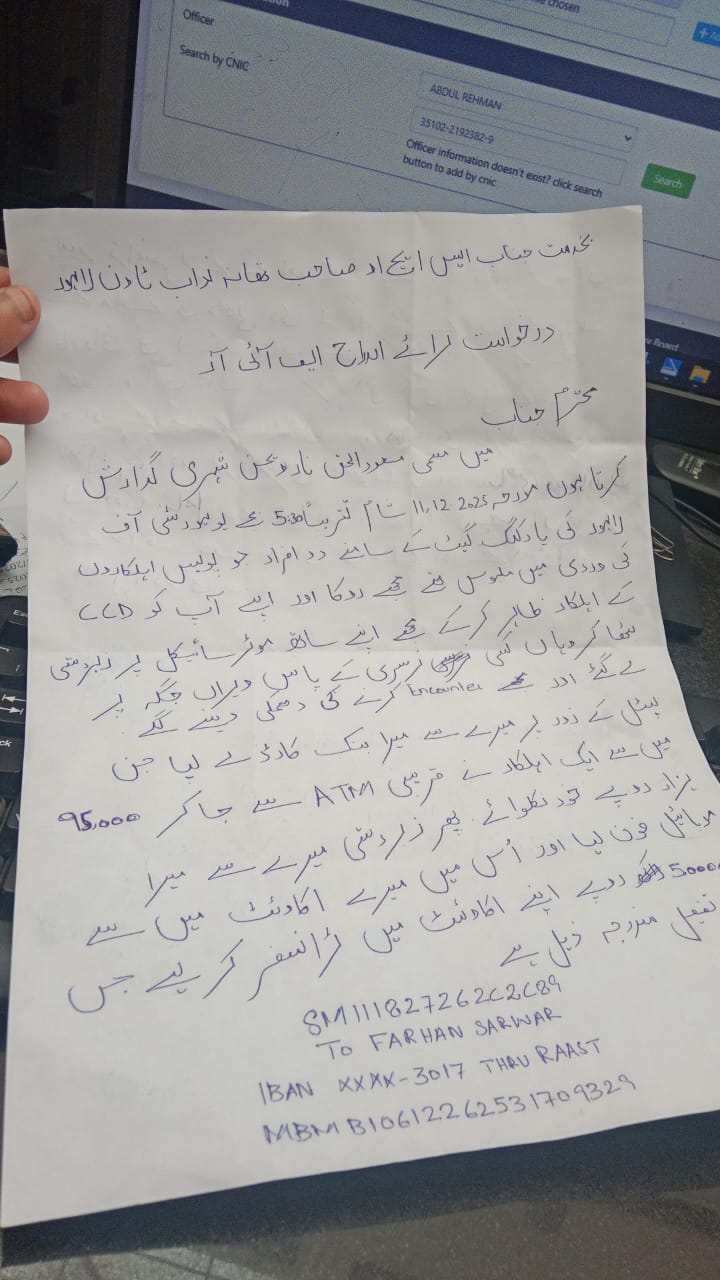 Officer
Search by CNIC
ABDUL REHMAN
35102-2192382-9
Officer information doesn't exist? click search
button to add by cnic
Search
بخدمت جناب ایس ایچ او صاحب تھانہ نواب ٹاون لاہور
درخواست برائے اندراج ایف آئی آر
محترم جناب
میں مسمی مسعودالحق نارویجن شہری گذارش
کرتا ہوں مورخہ 11,12 2025 شام تقریباً 5:30 بجے یونیورسٹی آف
لاہور کی پارکنگ گیٹ کے سامنے دو افراد جو پولیس اہلکاروں
کی وردی میں ملبوس تھے مجھے روکا اور اپنے آپ کو CCD
کے اہلکار ظاہر کر کے مجھے اپنے ساتھ موٹر سائیکل پر زبردستی
بٹھا کر وہاں کسی نرسری کے پاس ویران جگہ پر
لے گئے اور Encounter کرنے کی دھمکی دینے لگے
پسٹل کے زور پر میرے سے میرا بنک کارڈ لے لیا جن
میں سے ایک اہلکار نے قریبی ATM سے جا کر 95,000
ہزار روپے خود نکلوائے۔ پھر زبردستی میرے سے میرا
موبائیل فون لیا اور اُس میں میرے اکاونٹ میں سے
روپے اپنے اکاونٹ میں ٹرانسفر کر لیے جس
تفصیل مندرجہ ذیل ہے
TO FARHAN SARWAR
IBAN XXXX-3017 THRU RAAST
MBM B10612262531709329